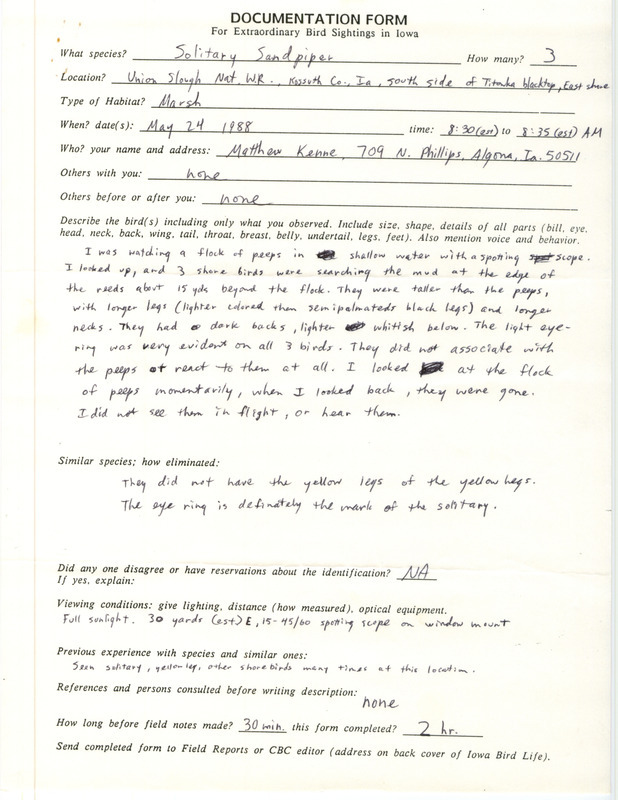 DOCUMENTATION FORM
For Extraordinary Bird Sightings in Iowa
What species? Solitary Sandpiper How many? 3
Location? Union Slough Nat. W.R., Kossuth Co., Ia, south side of Titonka blacktop, East shore
Type of Habitat? Marsh
When? date(s): May 24 1988 time: 8:30(est) to 8:35 (est) AM
Who? your name and address: Matthew Kenne, 709 N. Phillips, Algona, Ia. 50511
Others with you: none
Others before or after you: none
Describe the bird(s) including only what you observed. Include size, shape, details of all parts (bill, eye,
head, neck, back, wing, tail, throat, breast, belly, undertail, legs, feet). Also mention voice and behavior.
I was watching a flock of peeps in shallow water with a spotting scope.
I looked up, and 3 shore birds were searching the mud at the edge of
the reeds about 15 yds beyond the flock. They were taller than the peeps,
with longer legs (lighter colored then semipalmateds black legs) and longer
necks. They had dark backs, lighter whitish below. The light eye-
ring was very evident on all 3 birds. They did not associate with
the peeps or react to them at all. I looked at the flock
of peeps momentarily, when I looked back, they were gone.
I did not see them in flight, or hear them.
Similar species; how eliminated:
They did not have the yellow legs of the yellowlegs.
The eye ring is definately the mark of the solitary.
Did any one disagree or have reservations about the identification? NA
If yes, explain:
Viewing conditions: give lighting, distance (how measured), optical equipment.
Full sunlight. 30 yards (est) E, 15-45/60 spotting scope on window mount
Previous experience with species and similar ones:
Seen solitary, yellowleg, other shorebirds many times at this location.
References and persons consulted before writing description:
none
How long before field notes made? 30 min. this form completed? 2 hr.
Send completed form to Field Reports or CBC editor (address on back cover of Iowa Bird Life).